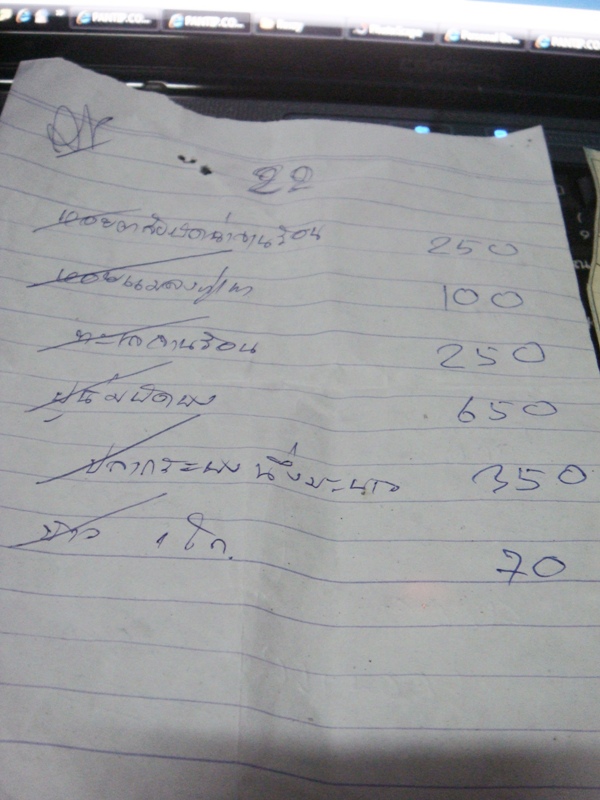 PANTIP.CO... PANTIP.CO...
22
250
หอยแมลงภู่เผา 100
ทะเลจานร้อน 250
ปูนิ่มผัดผง 650
ปลากระพงนึ่งมะนาว 350
ข้าว 1 โถ. 70